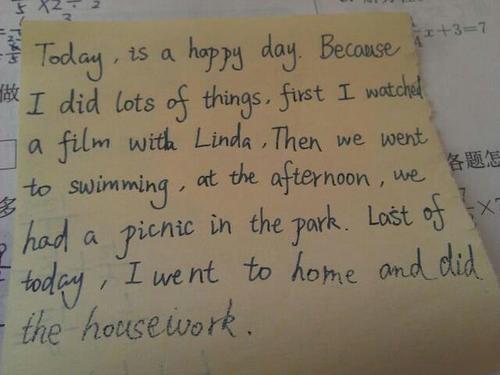 Today, is a happy day. Because
I did lots of things, first I watched
a film with Linda, Then we went
to swimming, at the afternoon, we
had a picnic in the park. Last of
today, I went to home and did
the housework.
x+3=7
做
各题怎
多